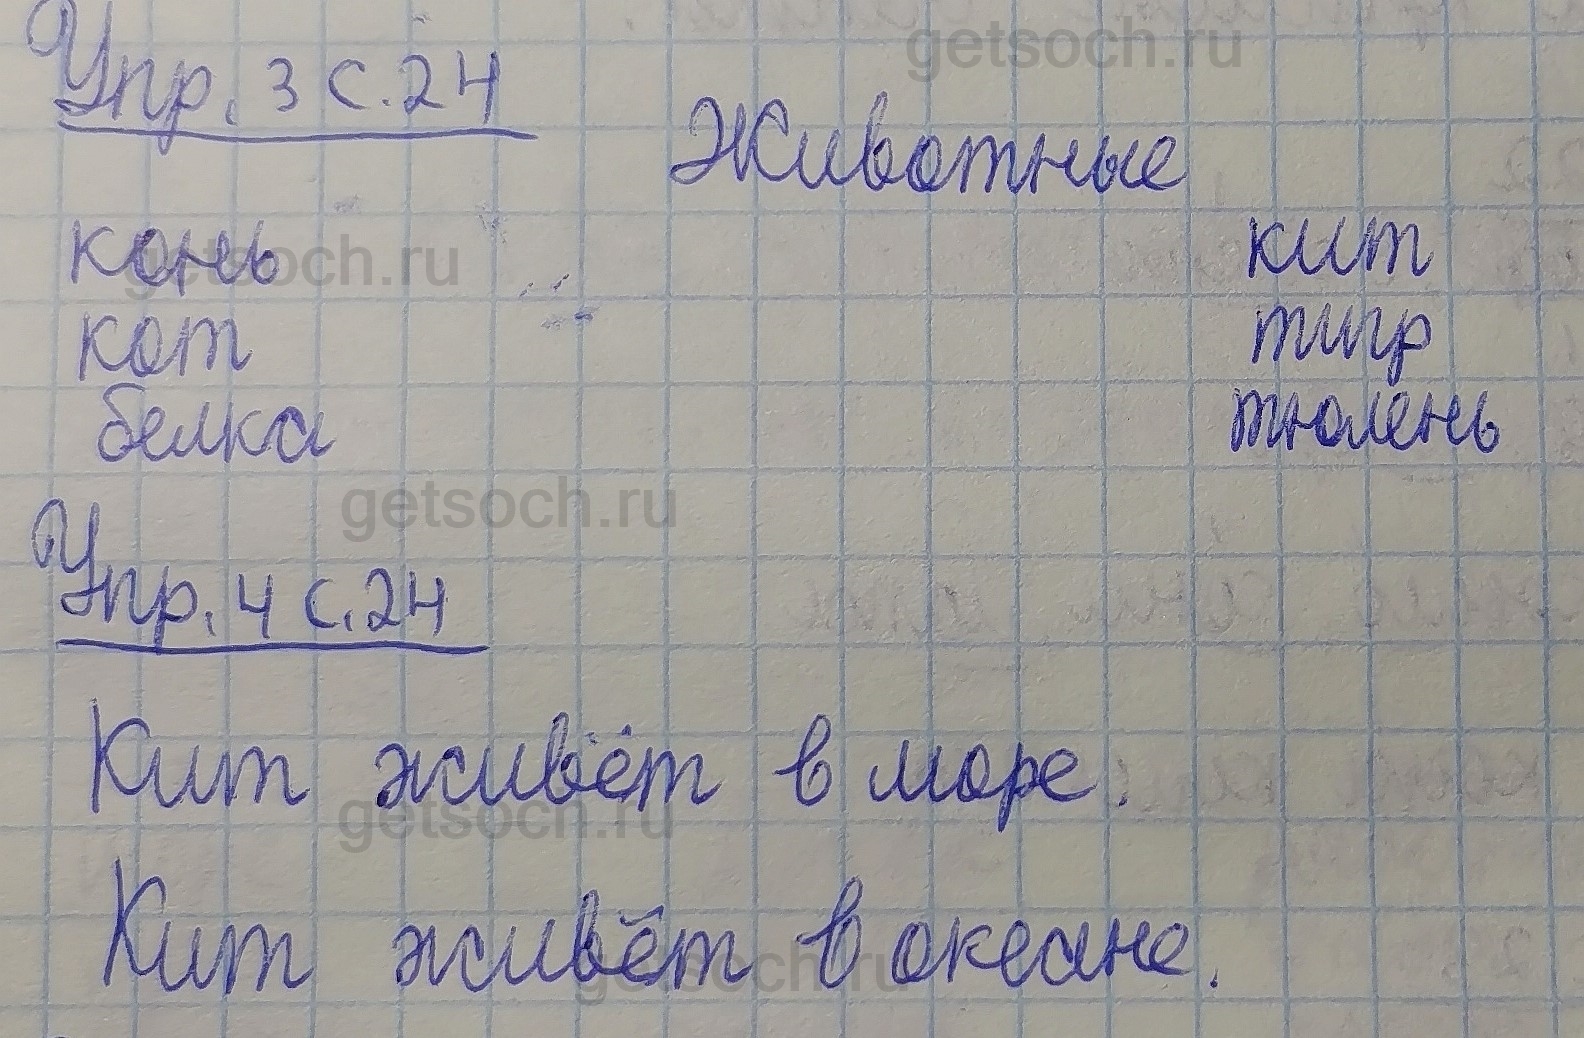 getsoch.ru
Упр. 3 с. 24
Животные
конь кит
getsoch.ru
кот тигр
белка тюлень
getsoch.ru
Упр. 4 с. 24
Кит живёт в море.
getsoch.ru
Кит живёт в океане.
getsoch.ru